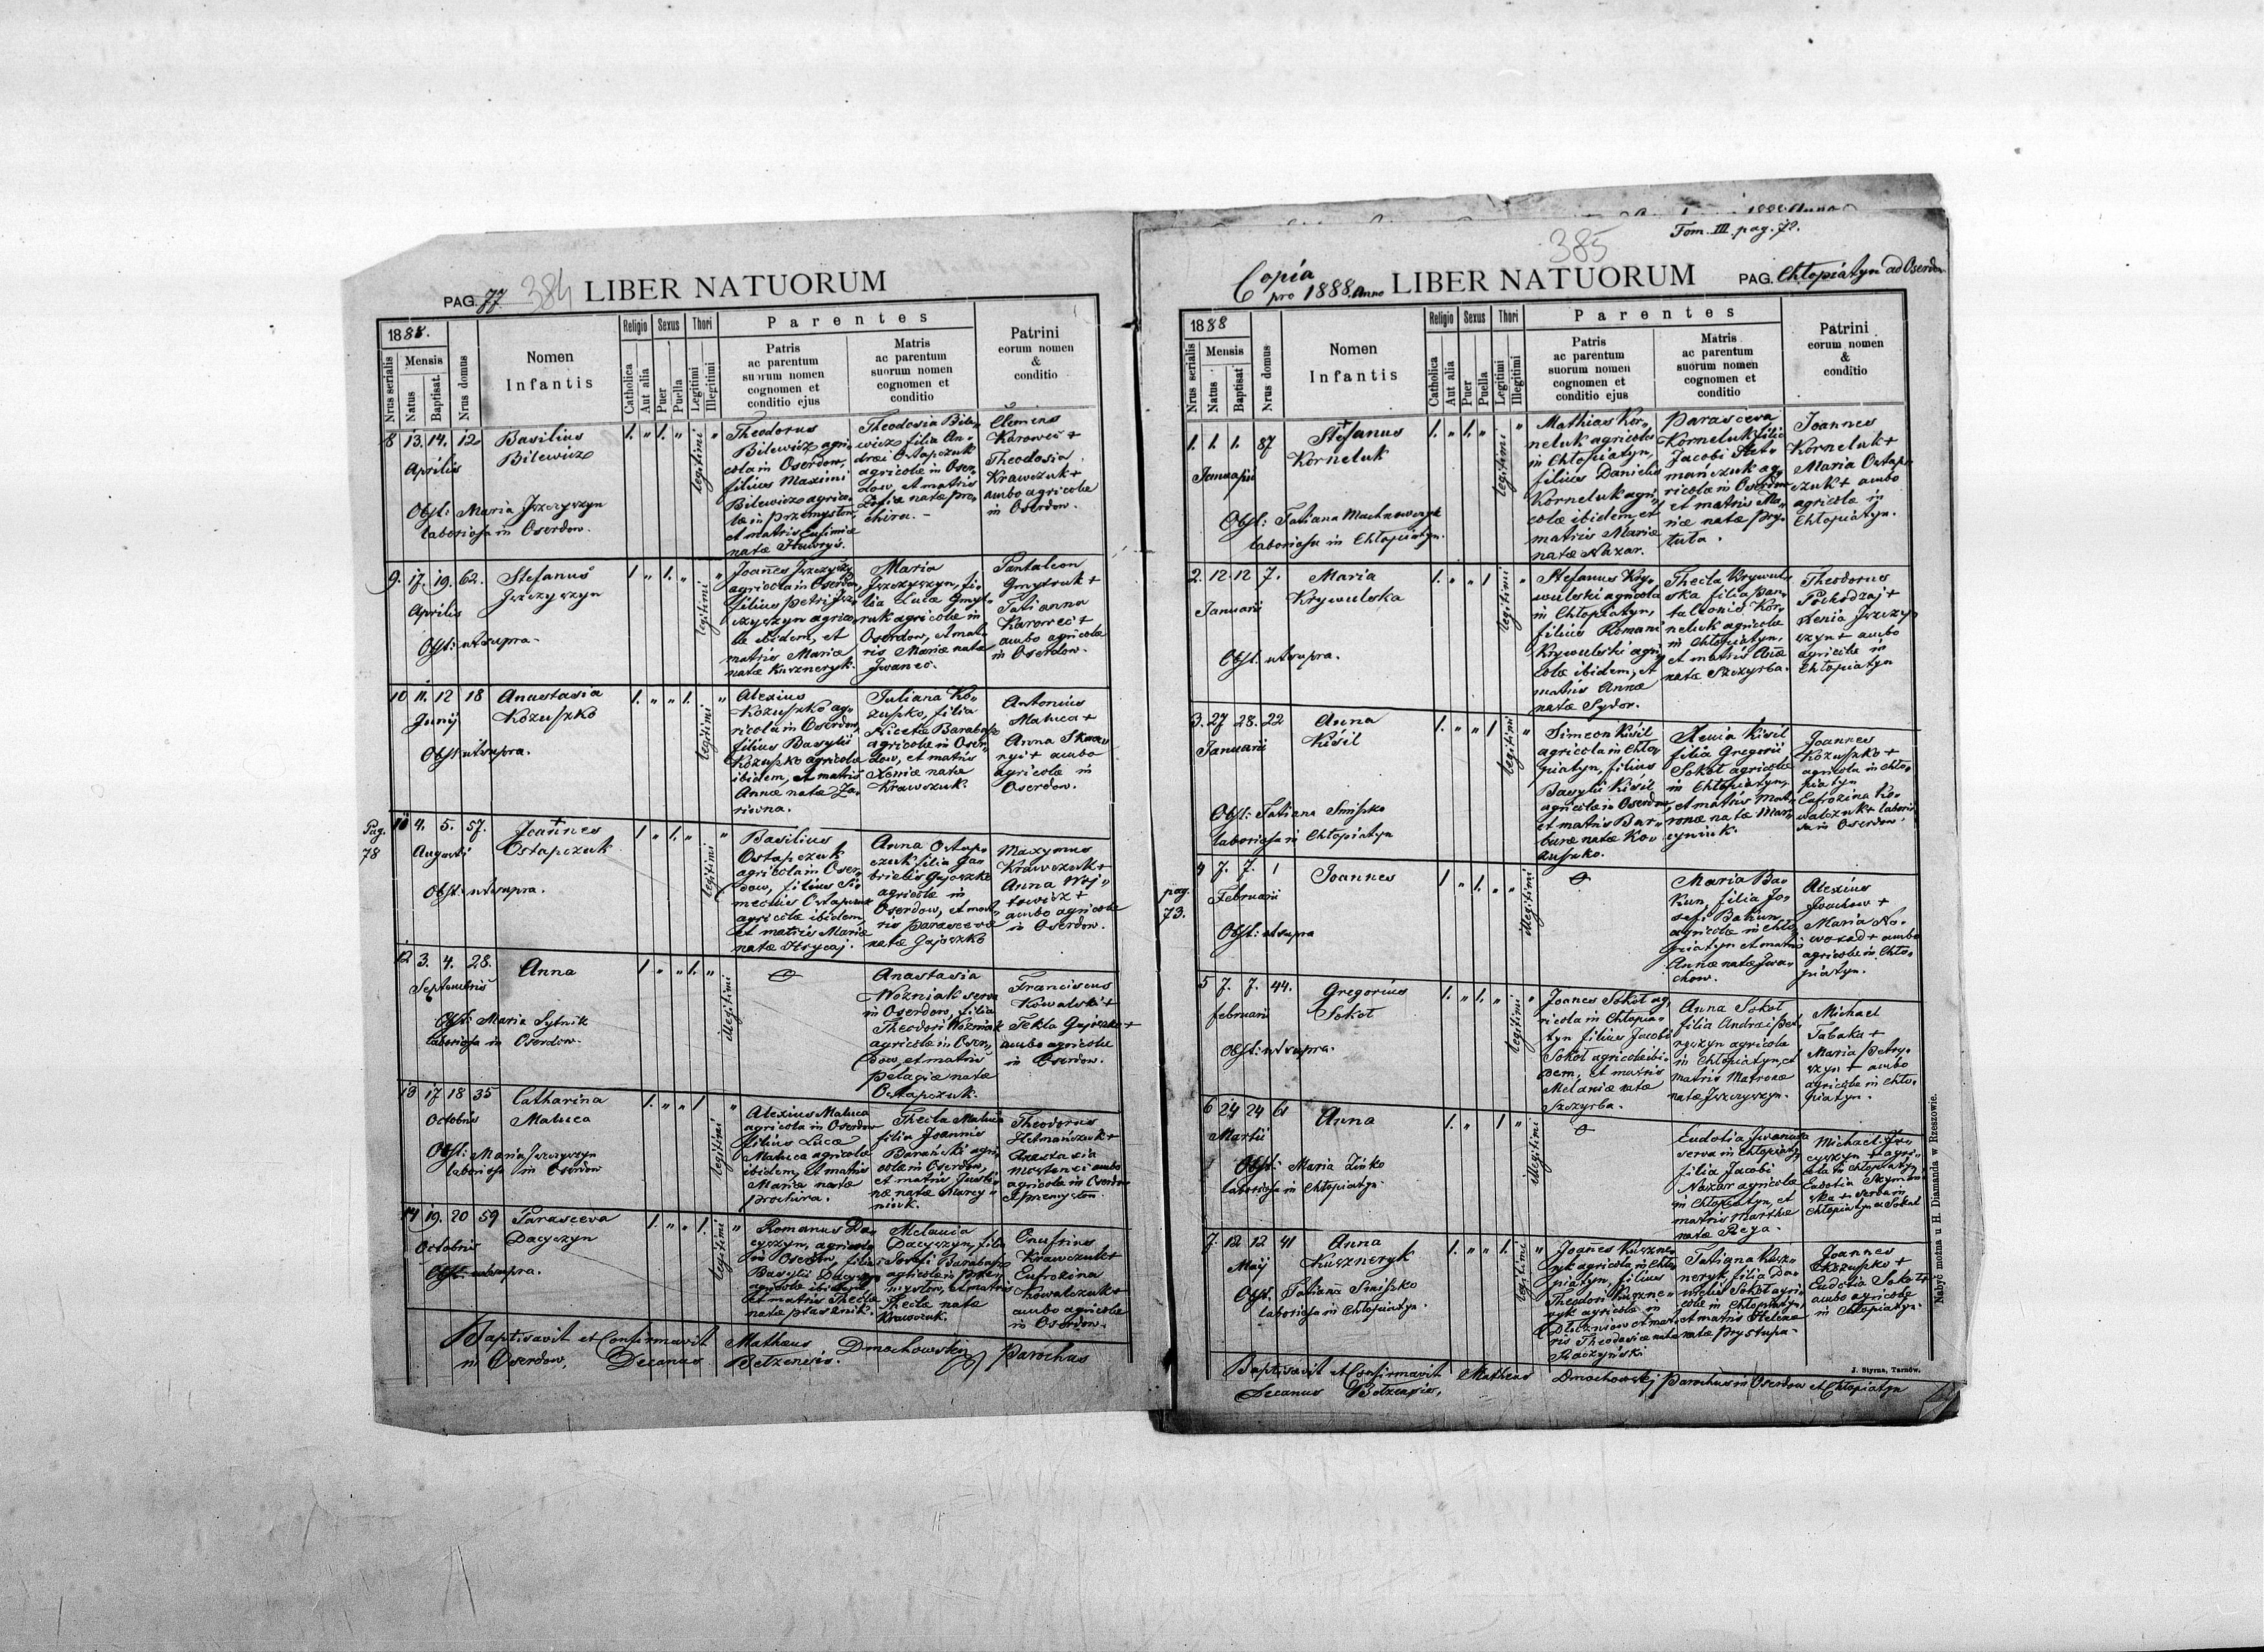 PAG. 77 384 LIBER NATUORUM
1888.
Nrus serialis
Mensis
Natus
Baptisat.
Nrus domus
Nomen
Infantis
Religio
Catholica
Aut alia
Sexus
Puer
Puella
Thori
Legitimi
Illegitimi
Parentes
Patris
ac parentum
suorum nomen
cognomen et
conditio ejus
Matris
ac parentum
suorum nomen
cognomen et
conditio
Patrini
eorum nomen
&
conditio
8 13. 14. 12
Aprilis
Basilius
Bilewicz
Obst: Maria Jszczyszyn
laboriosa in Oserdow.
1. " 1. " legitimi "
Theodorus
Bilewicz agri-
cola in Oserdow,
filius Maximi
Bilewicz agrico-
lae in Przemysłow,
et matris Eufimiae
natae Hawryś.
Theodosia Bile-
wicz filia An-
drei Ostapczuk
agricolae in Oser-
dow, et matris
natae Pro-
chira. -
Clemens
Karoweć +
Theodosia
Krawczuk +
ambo agricolae
in Oserdow.
9. 17. 19. 62.
Aprilis
Stefanus
Jszczyszyn
Obst: ut supra-
1 " 1. " legitimi "
Joannes Jszczyszyn
agricola in Oserdow,
filius Petri Jsz-
czyszyn agrico-
lae ibidem, et
matris Mariae
natae Kuszneryk.
Maria
Jszczyszyn, fi-
lia Lucae Gmyt-
ruk agricolae in
Oserdow, et mat-
ris Mariae natae
Jwaneć.
Pantaleon
Gmytruk +
Tatianna
Karoweć +
ambo agricolae
in Oserdow.
10 11. 12 18
Junij
Anastasia
Kozuszko
Obst: ut supra.
1. " " 1. legitimi "
Alexius
Kozuszko ag-
ricola in Oserdow,
filius Basylii
Kozuszko agricolae
ibidem, et matris
Annae natae Za-
riwna.
Juliana Ko-
zuszko, filia
Nicetae Barabasz
agricolae in Oser-
dow, et matris
Xeniae natae
Krawczuk.
Antonius
Matuca +
Anna
+ ambo
agricolae in
Oserdow.
Pag.
78
11 4. 5. 57.
Augusti
+
Joannes
Ostapczuk
Obst: ut supra.
1 " 1. " legitimi "
Basilius
Ostapczuk
agricola in Oser-
dow, filius Si-
meonis Ostapczuk
agricolae ibidem,
et matris Mariae
natae Hrycaj.
Anna Ostap-
czuk filia Ga-
brielis Gajoszko
agricolae in
Oserdow, et mat-
ris Parascevae
natae Gajoszko
Maxymus
Krawczuk +
Anna Woj-
towicz +
ambo agricolae
in Oserdow.
12 3. 4. 28.
Septembris
Anna
Obst: Maria Sytnik
laboriosa in Oserdow.
1 " " 1. " illegitimi
Anastasia
Wozniak serva
in Oserdow, filia
Theodori Wozniak
agricolae in Oser-
dow, et matris
Pelagiae natae
Ostapczuk.
Franciscus
Kowalski +
Tekla Gajoszko +
ambo agricolae
in Oserdow.
13 17 18 35
Octobris
Catharina
Matuca
Obst: Maria Jszczyszyn
laboriosa in Oserdow
1. " " 1 legitimi "
Alexius Matuca
agricola in Oserdow
filius Lucae
Matuca agricolae
ibidem, et matris
Mariae natae
Prochira.
Thecla Matuca
filia Joannis
Barański agri-
colae in Oserdow,
et matris Justi-
nae natae Marcy-
niuk.
Theodorus
Hetmańczuk +
Anastasia
ambo
agricolae in Oserdow
et Przemysłow
14 19. 20 59
Octobris
Parasceva
Dacyszyn
Obst: ut supra.
1. " " 1. legitimi "
Romanus Da-
cyszyn, agricola
in Oserdow, filius
Basylii Dacyszyn
agricolae ibidem,
et matris Theclae
natae Ptasznik.
Melania
Dacyszyn, filia
Josefi Barabasz
agricolae in Prze-
mysłow, et matris
Theclae natae
Krawczuk.
Onufrius
Krawczuk +
Eufrozina
Kowalczuk +
ambo agricolae
in Oserdow.
Baptisavit et Confirmavit Matheus Dmochowski Parochus
in Oserdow, Decanus Bełzensis.
Tom. III. pag. 72.
385
Copia
pro 1888. Anno LIBER NATUORUM PAG. Chłopiatyn ad Oserdow
1888
Nrus serialis
Mensis
Natus
Baptisat
Nrus domus
Nomen
Infantis
Religio
Catholica
Aut alia
Sexus
Puer
Puella
Thori
Legitimi
Illegitimi
Parentes
Patris
ac parentum
suorum nomen
cognomen et
conditio ejus
Matris
ac parentum
suorum nomen
cognomen et
conditio
Patrini
eorum nomen
&
conditio
1. 1. 1. 87
Januarii
+
Stefanus
Korneluk
Obst: Tatiana
laboriosa in Chłopiatyn.
1. " 1. " legitimi "
Mathias Kor-
neluk agricola
in Chłopiatyn,
filius Danielis
Korneluk agri-
colae ibidem, et
matris Mariae
natae Nazar.
Parasceva
Korneluk filia
Jacobi Het-
mańczuk ag-
ricolae in Oserdow
et matris Ma-
riae natae Pry-
tula.
Joannes
Korneluk +
Maria Ostap-
czuk + ambo
agricolae in
Chłopiatyn.
2. 12. 12 7.
Januarii
Maria
Krywulska
Obst. ut supra.
1. " " 1 legitimi "
Stefanus Kry-
wulski agricola
in Chłopiatyn,
filius Romani
Krywulski agri-
colae ibidem, et
matris Annae
natae Sydor.
Thecla Krywul-
ska filia Pan-
taleonis Kor-
neluk agricolae
in Chłopiatyn,
et matris Annae
natae Szczyrba.
Theodorus
Pochodzaj +
Xenia Jszczy-
szyn + ambo
agricolae in
Chłopiatyn
3. 27 28. 22
Januarii
Anna
Kisil
Obst: Tatiana Smiszko
laboriosa in Chłopiatyn
1. " " 1 legitimi "
Simeon Kisil
agricola in Chło-
piatyn, filius
Basylii Kisil
agricolae in Oserdow,
et matris Bar-
barae natae Ko-
zuszko.
Xenia Kisil
filia Gregorii
Sokoł agricolae
in Chłopiatyn,
et matris Mat-
ronae natae Mar-
cyniuk.
Joannes
Kozuszko +
agricola in Chło-
piatyn
Eufrozina Ko-
walczuk + laborio-
sa in Oserdow.
pag.
73.
4 7. 7. 1
Februarii
Joannes
Obst: ut supra
1 " 1. " " illegitimi
Maria Ba-
kun, filia Jo-
sefi Bakun,
agricolae in Chło-
piatyn et matris
Annae natae Jwa-
chow.
Alexius
Jwachow +
Maria No-
wosad + ambo
agricolae in Chło-
piatyn.
5 7. 7. 44.
februarii
Gregorius
Sokoł
Obst: ut supra.
1. " 1. " legitimi "
Joanes Sokoł ag-
ricola in Chłopia-
tyn filius Jacobi
Sokoł agricolae ibi-
dem, et matris
Melaniae natae
Szczyrba.
Anna Sokoł
filia Andrei Pet-
ryszyn agricolae
in Chłopiatyn, et
matris Matronae
natae Jszczyszyn.
Michael
Tabaka +
Maria Petry-
szyn + ambo
agricolae in Chło-
piatyn.
6 24 24 61
Martii
Anna
Obst: Maria Zińko
laboriosa in Chłopiatyn.
1. " 1 " illegitimi
Eudotia
serva in Chłopiatyn
filia Jacobi
Nazar agricolae
in Chłopiatyn, et
matris Marthae
natae Rega.
Michael
+ agri-
cola in Chłopiatyn
Eudotia Szymań-
ska + serva in
Chłopiatyn
7. 12 12 41
Maij
Anna
Kuszneryk
Obst. Tatiana Smiszko
laboriosa in Chłopiatyn.
1. " " 1. legitimi "
Joanes Kuszne-
ryk agricola in Chło-
piatyn, filius
Theodori Kuszne-
ryk agricolae in
Dłużniow et mat-
ris Theodosiae natae
Raczyński
Tatiana Kusz-
neryk filia Da-
nielis Sokoł agri-
colae in Chłopiatyn,
et matris Helenae
natae Prystupa-
Joannes
Kozuszko +
Eudotia Sokoł +
ambo agricolae
in Chłopiatyn.
Baptisavit et Confirmavit Matheus Dmochowski Parochus in Oserdow et Chłopiatyn
Decanus Bełzensis,
J. Styrna, Tarnów.
Nabyć można u H. Diamanda w Rzeszowie.